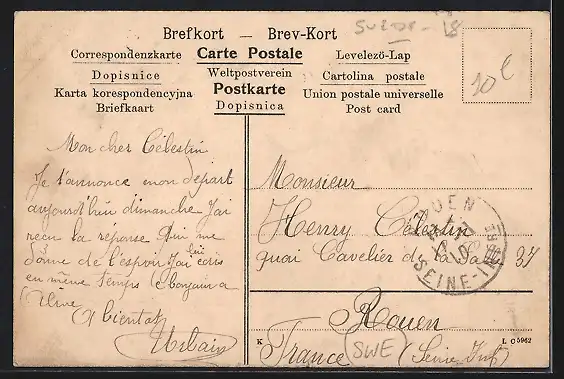 Brefkort — Brev-Kort
Correspondenzkarte Carte Postale Levelezö-Lap
Dopisnice Weltpostverein Cartolina postale
Karta korespondencyjna Postkarte Union postale universelle
Briefkaart Dopisnica Post card
10 €
Mon cher Célestin
Je t'annonce mon départ
aujourd'hui dimanche J'ai
recu la réponse Qui me
donne de l'espoir J'ai lui écris
en même temps
A bientot
Urbain
Monsieur
Henry Célestin
quai Cavelier de la Salle 37
Rouen
France (Seine Inf)
ROUEN
SEINE-INFRE
SWE
K
L C 5962